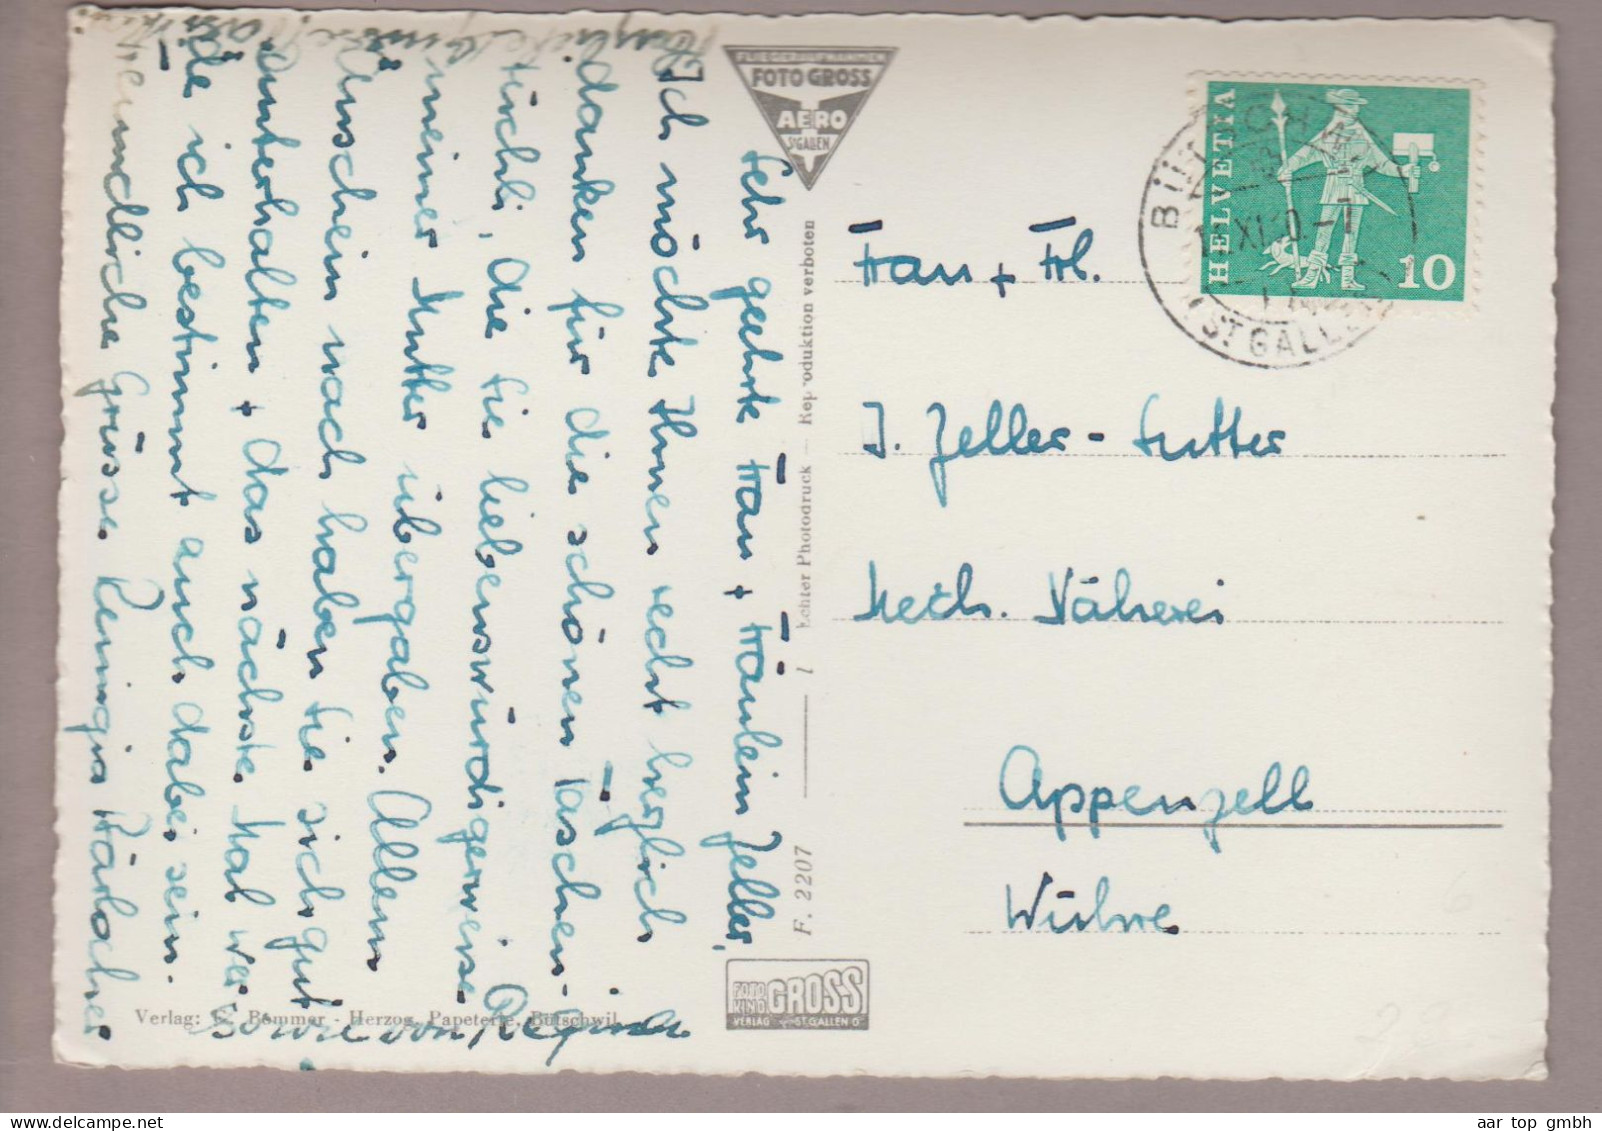 Sehr geehrte Frau + Fräulein Zeller,
Ich möchte Ihnen recht herzlich
danken für die schönen Taschen-
tüchli, die Sie liebenswürdigerweise
meiner Mutter übergaben. Allem
Anschein nach haben Sie sich gut
unterhalten + das nächste Mal wer-
de ich bestimmt auch dabei sein.
Freundliche Grüsse Remigia
sowie von Regina
FOTO GROSS
AERO
ST.GALLEN
F. 2207
Echter Photodruck — Reproduktion verboten
FOTO
GROSS
VERLAG ST.GALLEN O
Verlag: Bommer - Herzog, Papeterie, Bütschwil
HELVETIA
10
BÜTSCHWIL
XI. 0.-7
(ST GALLEN)
Frau + Frl.
J. Zeller-Sutter
Mech. Näherei
Appenzell
Wühre
aar top gmbh